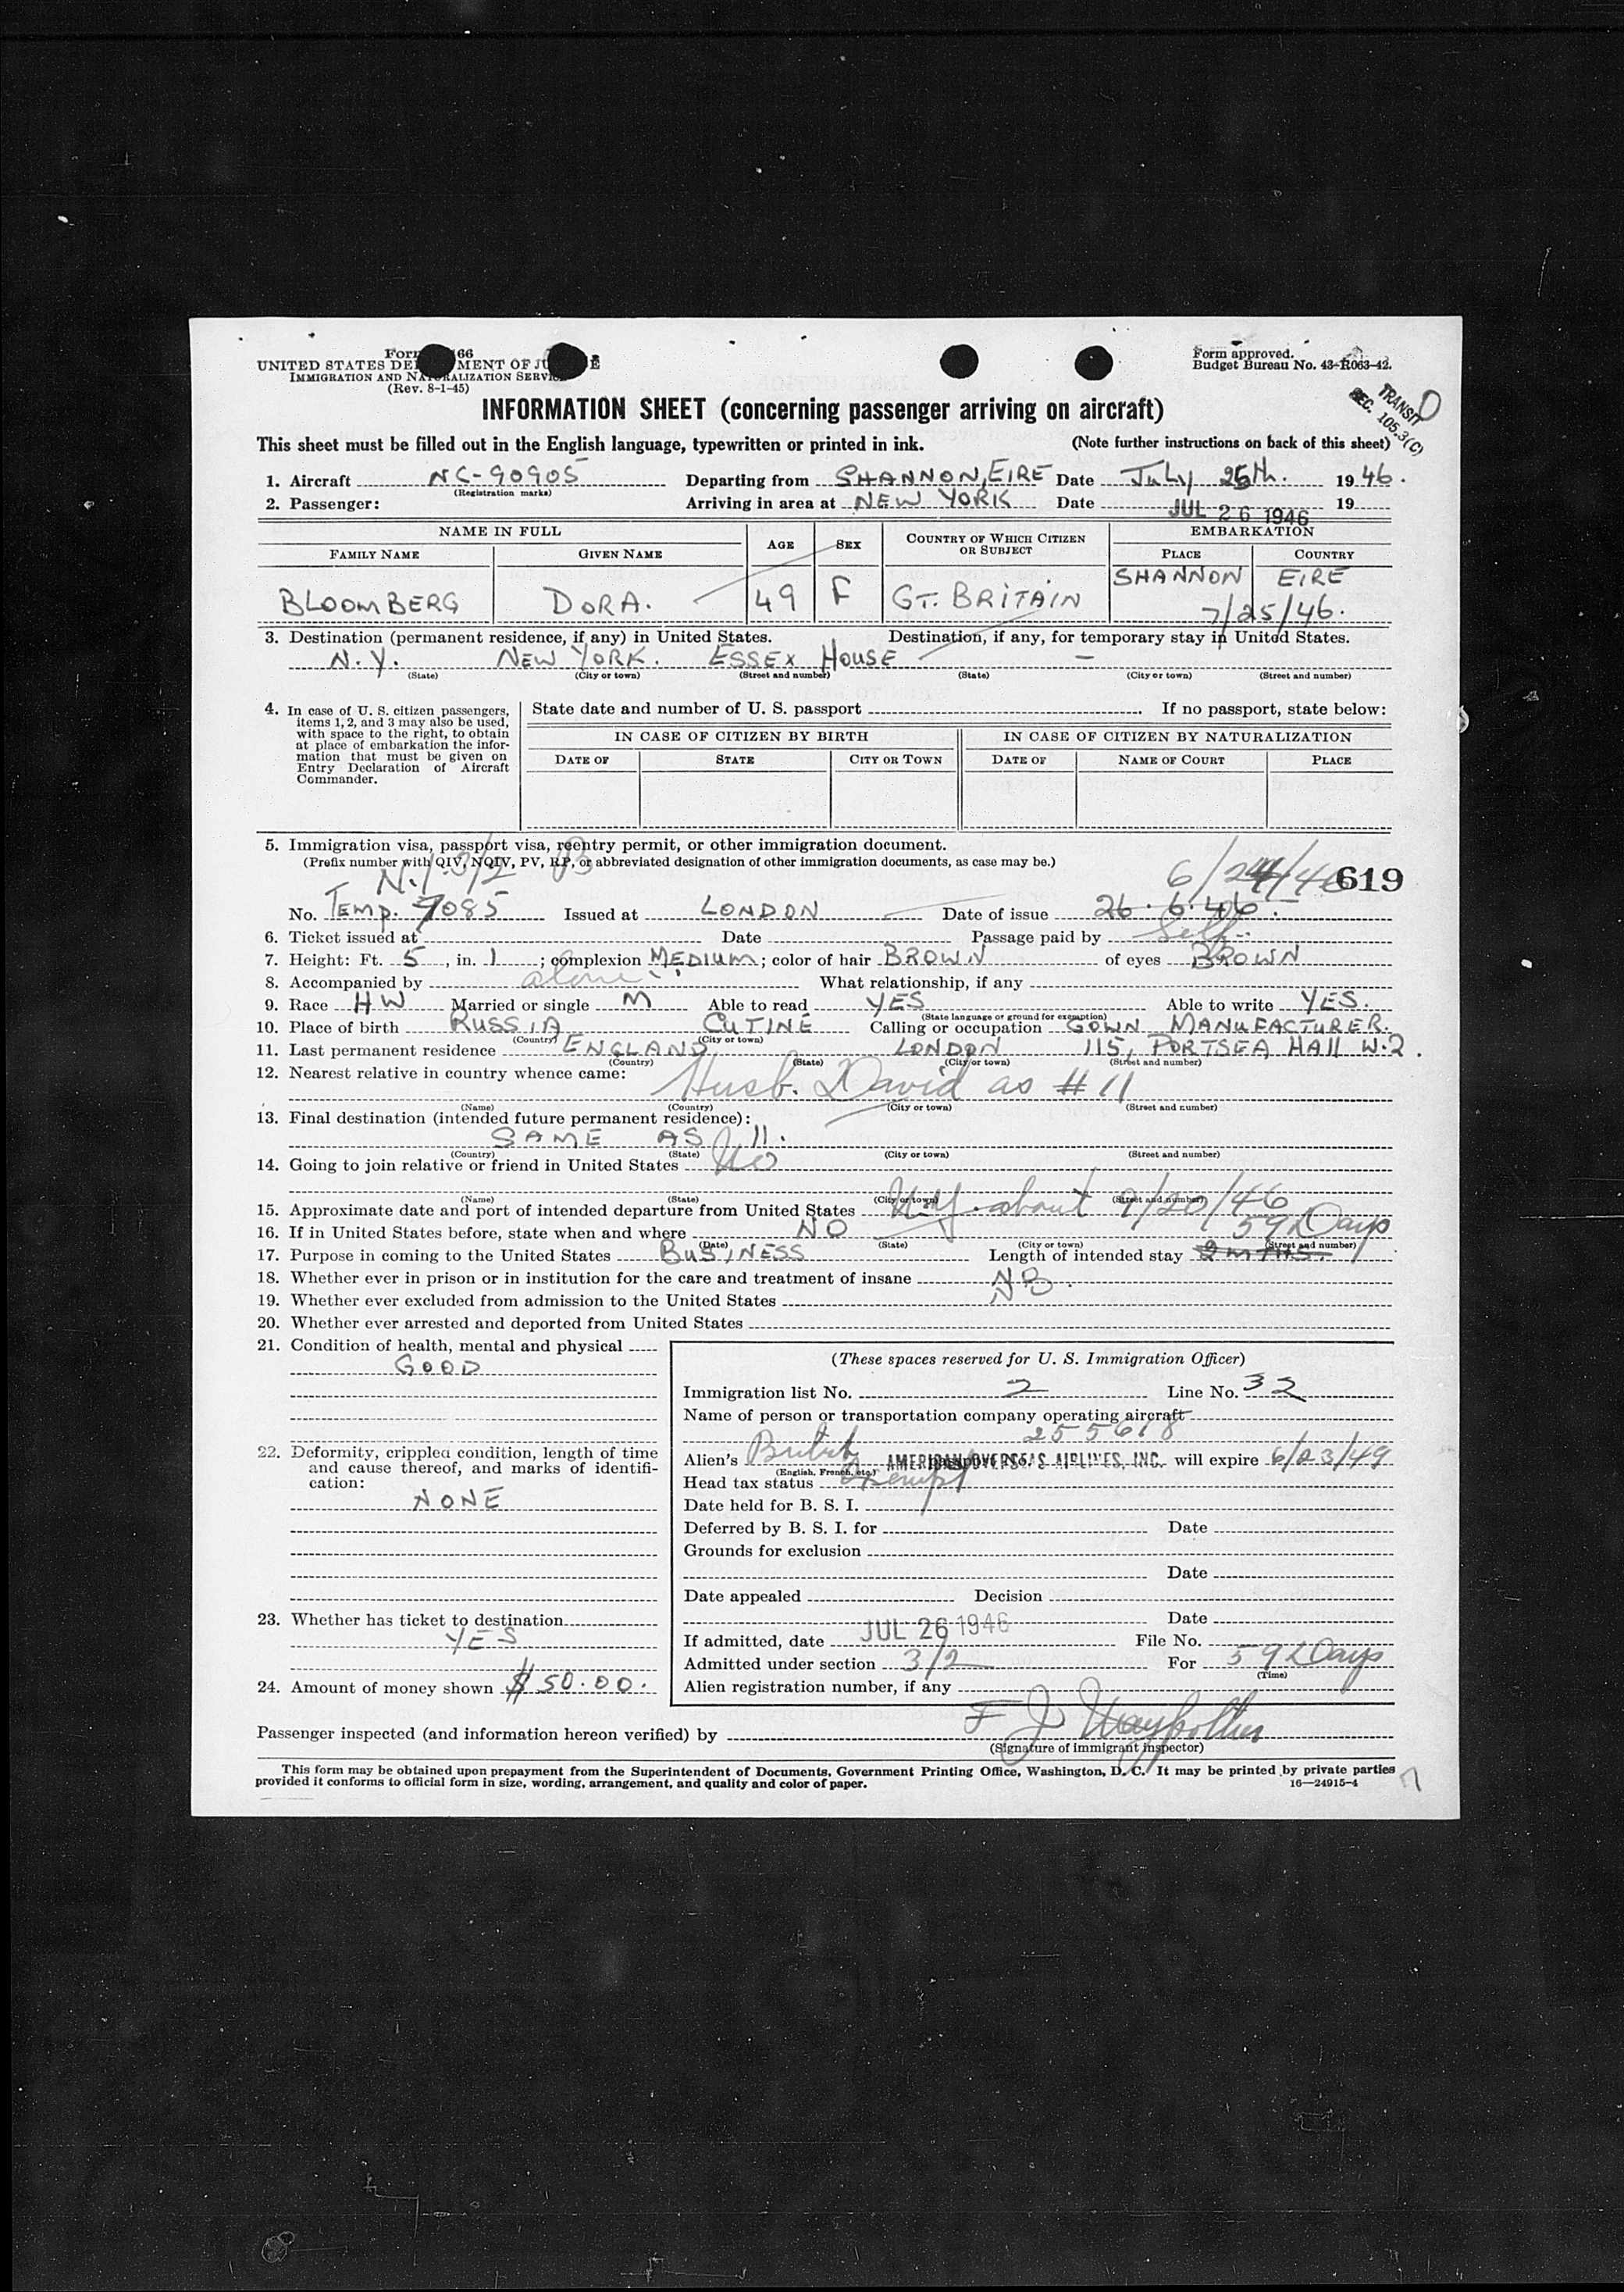 Form 66
UNITED STATES DE MENT OF JU E
IMMIGRATION AND NATURALIZATION SERVI
(Rev. 8-1-45)
Form approved.
Budget Bureau No. 43-R063-42.
TRANSIT
SEC. 105.3(C)
INFORMATION SHEET (concerning passenger arriving on aircraft)
This sheet must be filled out in the English language, typewritten or printed in ink. (Note further instructions on back of this sheet)
1. Aircraft NC-90905 Departing from SHANNON, EIRE Date July 25th. 1946.
(Registration marks)
2. Passenger: Arriving in area at NEW YORK Date JUL 26 1946 19
NAME IN FULL AGE SEX COUNTRY OF WHICH CITIZEN OR SUBJECT EMBARKATION
FAMILY NAME GIVEN NAME PLACE COUNTRY
BLOOMBERG DORA. 49 F GT. BRITAIN SHANNON EIRE
7/25/46.
3. Destination (permanent residence, if any) in United States. Destination, if any, for temporary stay in United States.
N.Y. NEW YORK. ESSEX HOUSE –
(State) (City or town) (Street and number) (State) (City or town) (Street and number)
4. In case of U. S. citizen passengers, items 1, 2, and 3 may also be used, with space to the right, to obtain at place of embarkation the information that must be given on Entry Declaration of Aircraft Commander.
State date and number of U. S. passport . If no passport, state below:
IN CASE OF CITIZEN BY BIRTH IN CASE OF CITIZEN BY NATURALIZATION
DATE OF STATE CITY OR TOWN DATE OF NAME OF COURT PLACE
5. Immigration visa, passport visa, reentry permit, or other immigration document.
(Prefix number with QIV, NQIV, PV, RP, or abbreviated designation of other immigration documents, as case may be.)
3/2 B 6/24/46 619
No. Temp. 7085 Issued at LONDON Date of issue 26.6.46.
6. Ticket issued at Date Passage paid by Self
7. Height: Ft. 5, in. 1; complexion MEDIUM; color of hair BROWN of eyes BROWN
8. Accompanied by alone What relationship, if any
9. Race HW Married or single M Able to read YES Able to write YES.
(State language or ground for exemption)
10. Place of birth RUSSIA CUTINE Calling or occupation GOWN MANUFACTURER.
(Country) (City or town)
11. Last permanent residence ENGLAND LONDON 115, PORTSEA HALL W.2.
(Country) (State) (City or town) (Street and number)
12. Nearest relative in country whence came: Husb. David as #11
(Name) (Country) (City or town) (Street and number)
13. Final destination (intended future permanent residence):
SAME AS 11.
(Country) (State) (City or town) (Street and number)
14. Going to join relative or friend in United States No
(Name) (State) (City or town) (Street and number)
15. Approximate date and port of intended departure from United States N.Y. about 9/20/46
16. If in United States before, state when and where NO 59 Days
(Date) (State) (City or town) (Street and number)
17. Purpose in coming to the United States BUSINESS Length of intended stay 2 MTHS.
18. Whether ever in prison or in institution for the care and treatment of insane NO.
19. Whether ever excluded from admission to the United States
20. Whether ever arrested and deported from United States
21. Condition of health, mental and physical
GOOD
22. Deformity, crippled condition, length of time and cause thereof, and marks of identification:
NONE
23. Whether has ticket to destination
YES
24. Amount of money shown $50.00.
(These spaces reserved for U. S. Immigration Officer)
Immigration list No. 2 Line No. 32
Name of person or transportation company operating aircraft
255618
Alien's British AMERICAN OVERSEAS AIRLINES, INC. will expire 6/23/49
(English, French, etc.)
Head tax status Exempt
Date held for B. S. I.
Deferred by B. S. I. for Date
Grounds for exclusion
Date
Date appealed Decision
Date
If admitted, date JUL 26 1946 File No.
Admitted under section 3/2 For 59 Days
(Time)
Alien registration number, if any
Passenger inspected (and information hereon verified) by F J
(Signature of immigrant inspector)
This form may be obtained upon prepayment from the Superintendent of Documents, Government Printing Office, Washington, D. C. It may be printed by private parties
provided it conforms to official form in size, wording, arrangement, and quality and color of paper. 16—24915-4